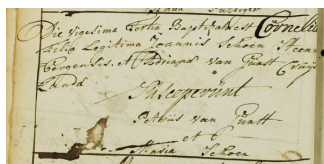 Die Vigesima Tertia Baptizata est Cornelia
Filia Legitima Joannis Schoen Steen
Bergensis. et Adriana van Gnatt
Susceperunt
Petrus van Gnatt
et
Maria Schoen